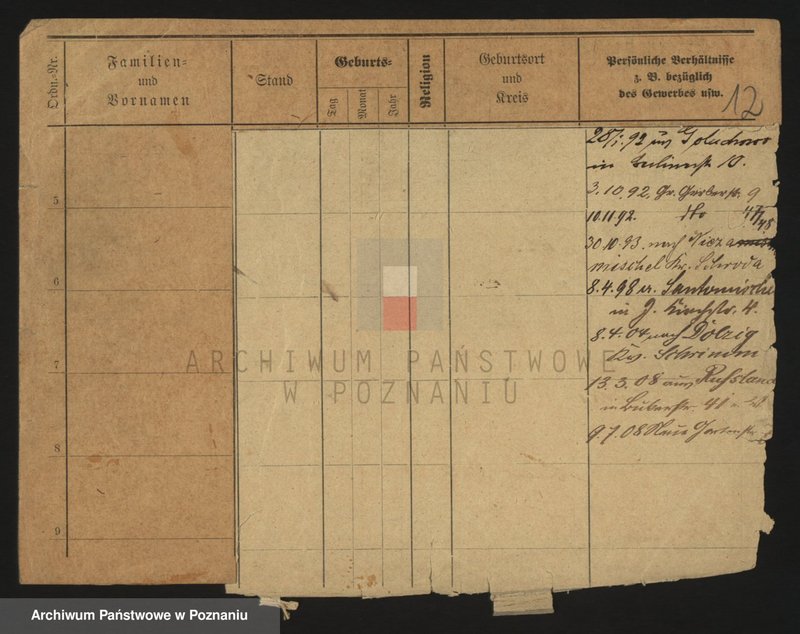 Ordn.-Nr.
Familien-
und
Vornamen
Stand
Geburts-
Tag
Monat
Jahr
Religion
Geburtsort
und
Kreis
Persönliche Verhältnisse
z. B. bezüglich
des Gewerbes usw.
12
28/1. 92 aus Goluchowo
in 10.
3.10.92. Gr. Gerberstr. 9
10.11.92. dto 47/48
30.10.93. nach
mischel Kr. Schroda
8.4.98 a. Santomischel
in J. Kirchstr. 4.
8.4.04 nach Dolzig
Krs. Schrimm
13.3.08 aus Russland
in
9.7.08 Neue Gartenstr.
5
6
7
8
9
ARCHIWUM PAŃSTWOWE
W POZNANIU
Archiwum Państwowe w Poznaniu